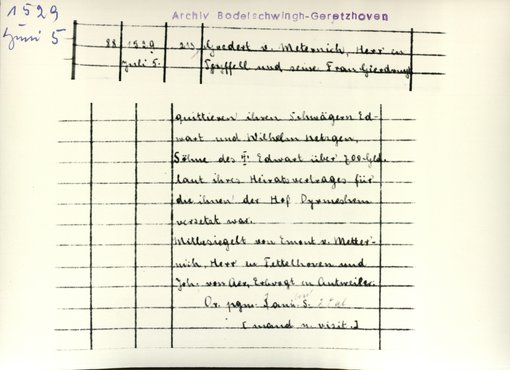 1529
Juni 5
Archiv Bodelschwingh-Geretzhoven
88 1529 25) Goedert v. Meternich, Herr zu
Juli 5. und seine Frau
quittieren ihren Schwägern Ed-
wart und Wilhelm Metzgen,
Söhne des † Edwart über 700 Gld.
laut ihres Heiratsvertrages für
die ihnen der Hof Dyrmeshem
versetzt war.
Mitbesiegelt von Emont v. Metter-
nich, Herr zu Tettelhoven und
Joh. von Aer, Erbvogt zu Antweiler.
Or. pgm. 1 anh. S.
[mand. n. visit.]